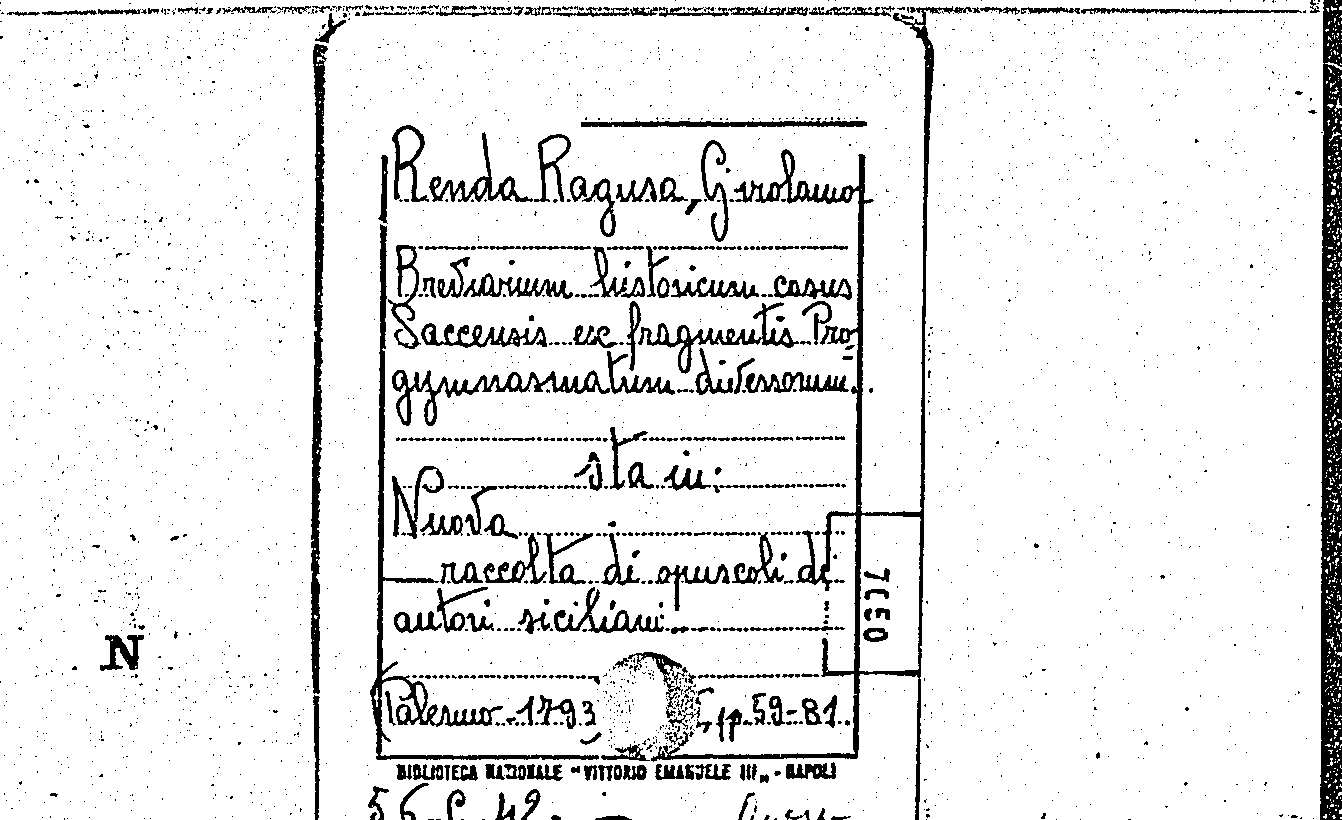 Renda Ragusa, Girolamo
Breviarium historicum casus
Saccensis ex fragmentis Pro=
gymnasmatum diversorum..
sta in:
Nuova
raccolta di opuscoli di
autori siciliani.
(Palermo - 1793) , pp. 59-81.
BIBLIOTECA NAZIONALE "VITTORIO EMANUELE III" - NAPOLI
N